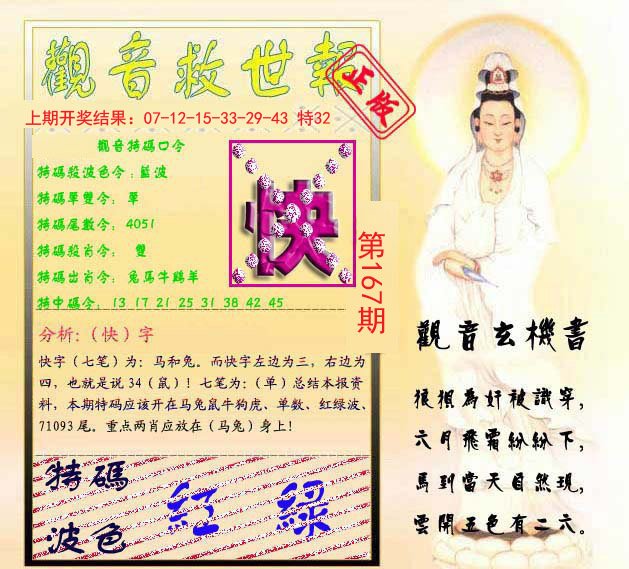 觀音救世報
正版
上期开奖结果：07-12-15-33-29-43 特32
觀音特碼口令
特碼殺波色令：藍波
特碼單雙令： 單
特碼尾數令： 4051
特碼殺肖令： 雙
特碼出肖令： 兔馬牛鷄羊
特中碼令： 13 17 21 25 31 38 42 45
快
第167期
分析：（快）字
快字（七笔）为：马和兔。而快字左边为三，右边为
四，也就是说 34（鼠）！七笔为：（单）总结本报资
料，本期特码应该开在马兔鼠牛狗虎、单数、红绿波、
71093 尾。重点两肖应放在（马兔）身上！
特碼
波色
紅 綠
觀音玄機書
狼狽為奸被識穿，
六月飛霜紛紛下，
馬到當天自然現，
雲開五色有二六。